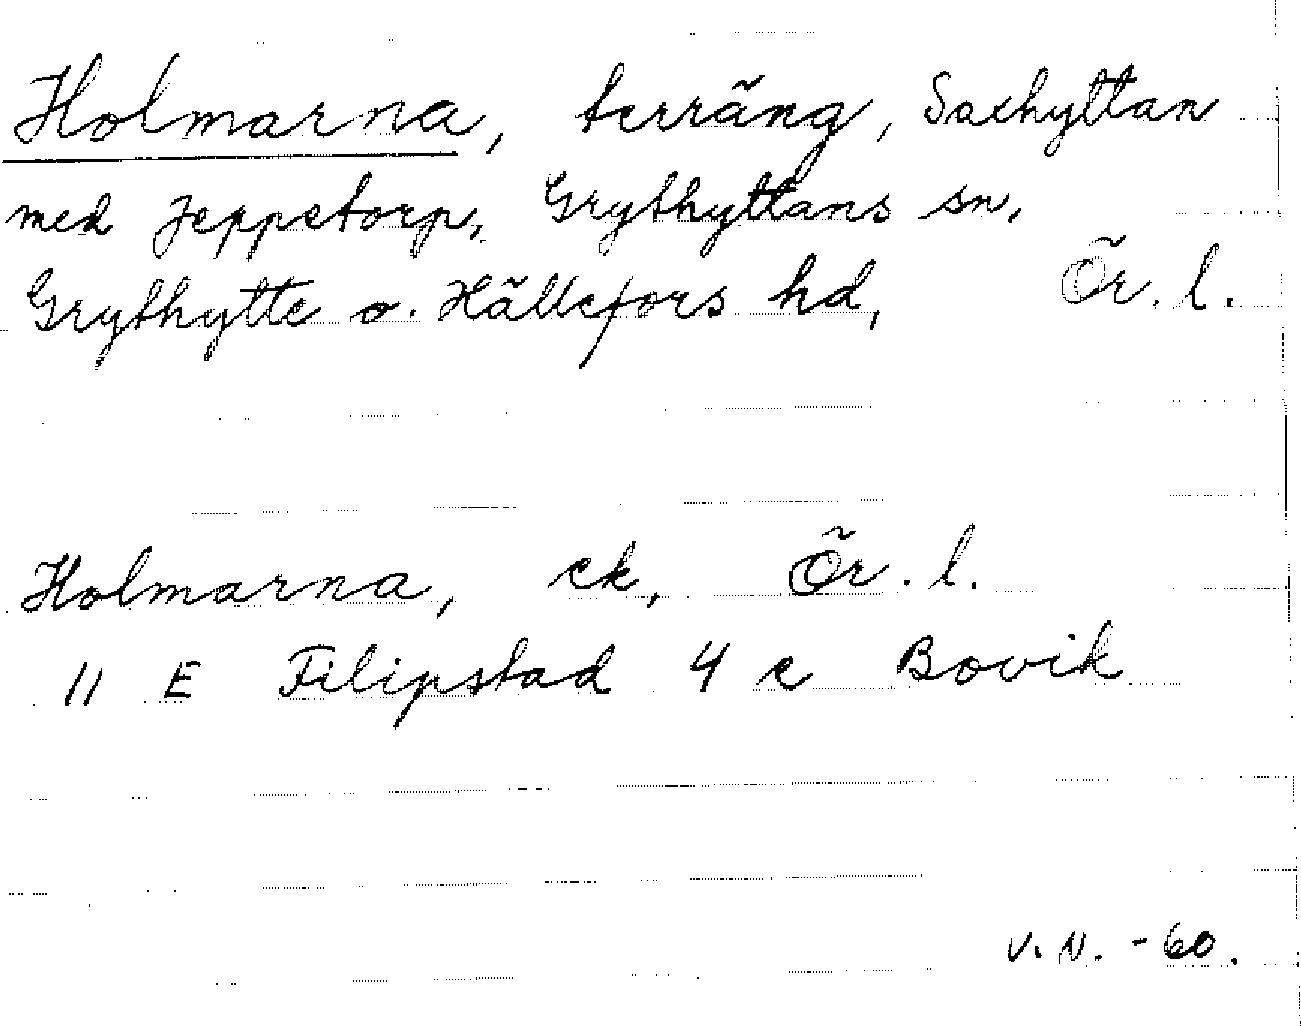 Holmarna, terräng, Saxhyttan
med Jeppetorp, Grythyttans sn,
Grythytte o. Hällefors hd, Ör. l.
Holmarna, ek, Ör. l.
11 E Filipstad 4 e Bovik
V. N. -60.